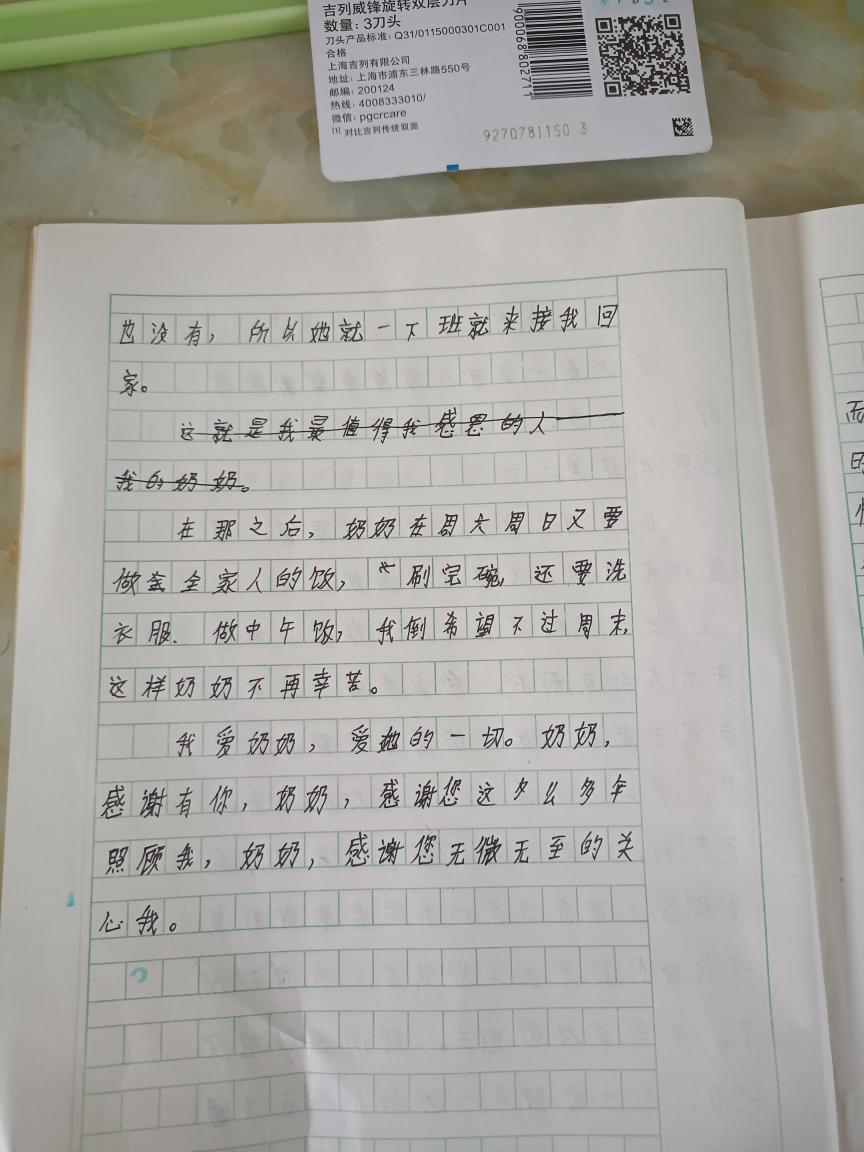 吉列威锋旋转双层刀片
数量：3刀头
刀头产品标准：Q31/0115000301C001
合格
上海吉列有限公司
地址：上海市浦东三林路550号
邮编：200124
热线：4008333010/
微信：pgcrcare
[1] 对比吉列传统双面
900068802711
92707811S0 3
也没有，所以她就一下班就来接我回
家。
这就是我最值得我感恩的人——
我的奶奶。
在那之后，奶奶在周六周日又要
做全家人的饭，刷完碗，还要洗
衣服、做中午饭，我倒希望不过周末，
这样奶奶不再幸苦。
我爱奶奶，爱她的一切。奶奶，
感谢有你，奶奶，感谢您这么多年
照顾我，奶奶，感谢您无微无至的关
心我。
而